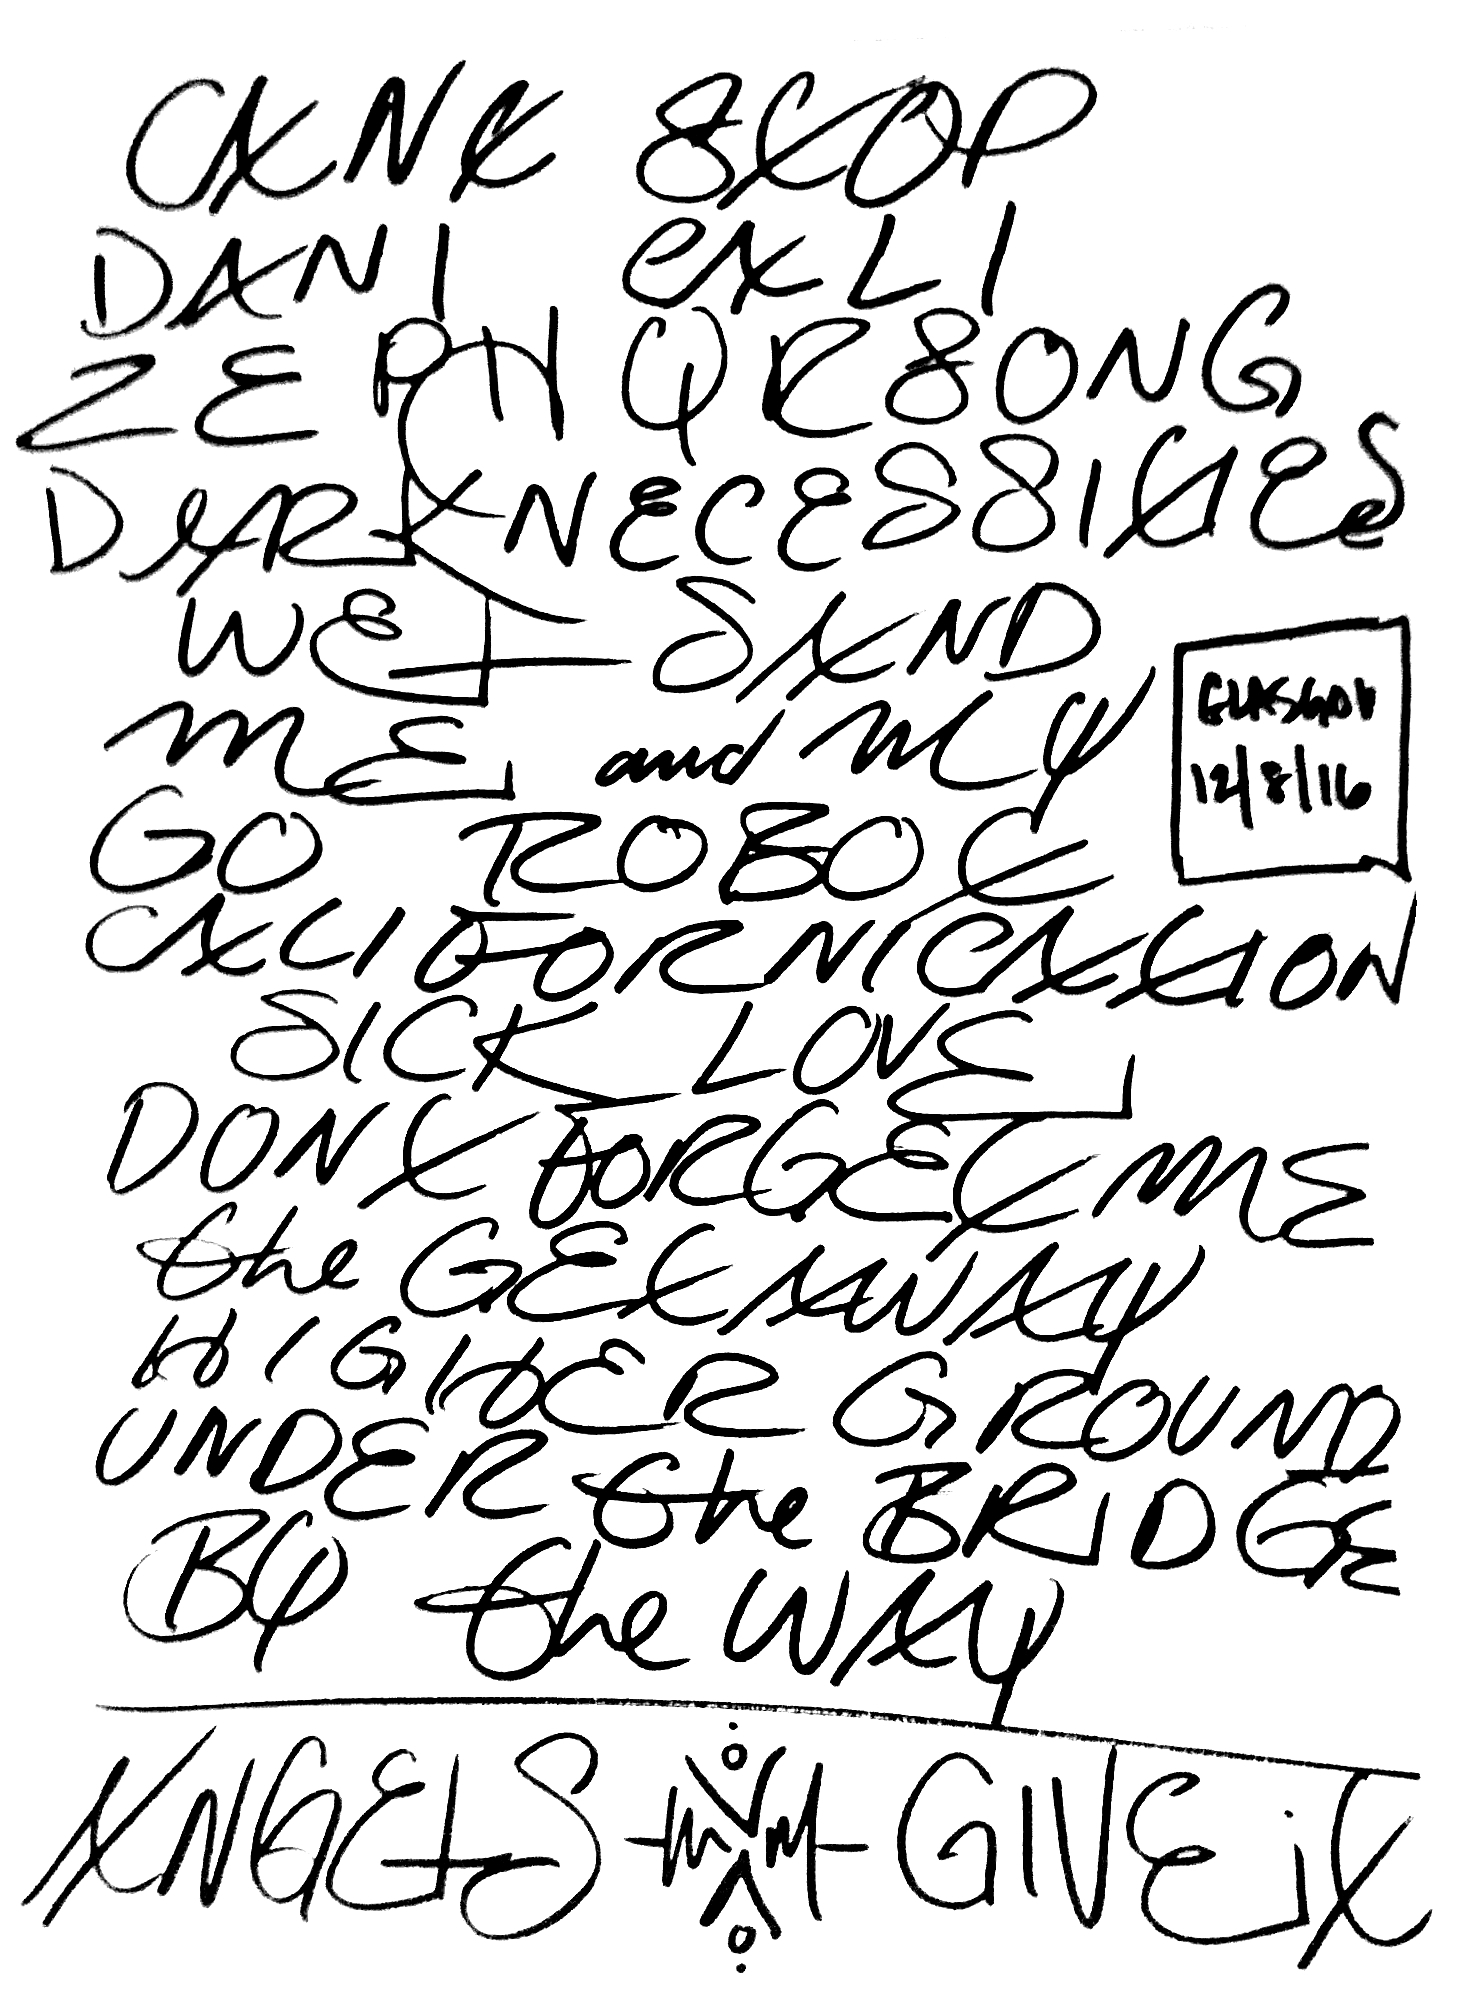 CAN'T STOP
DANI CALI
ZEPHYR SONG
DARK NECESSITIES
WET SAND
ME and MY
GLASGOW
12/8/16
GO ROBOT
CALIFORNICATION
SICK LOVE
DON'T FORGET ME
the GETAWAY
HIGHER GROUND
UNDER the BRIDGE
BY the WAY
GIVE it